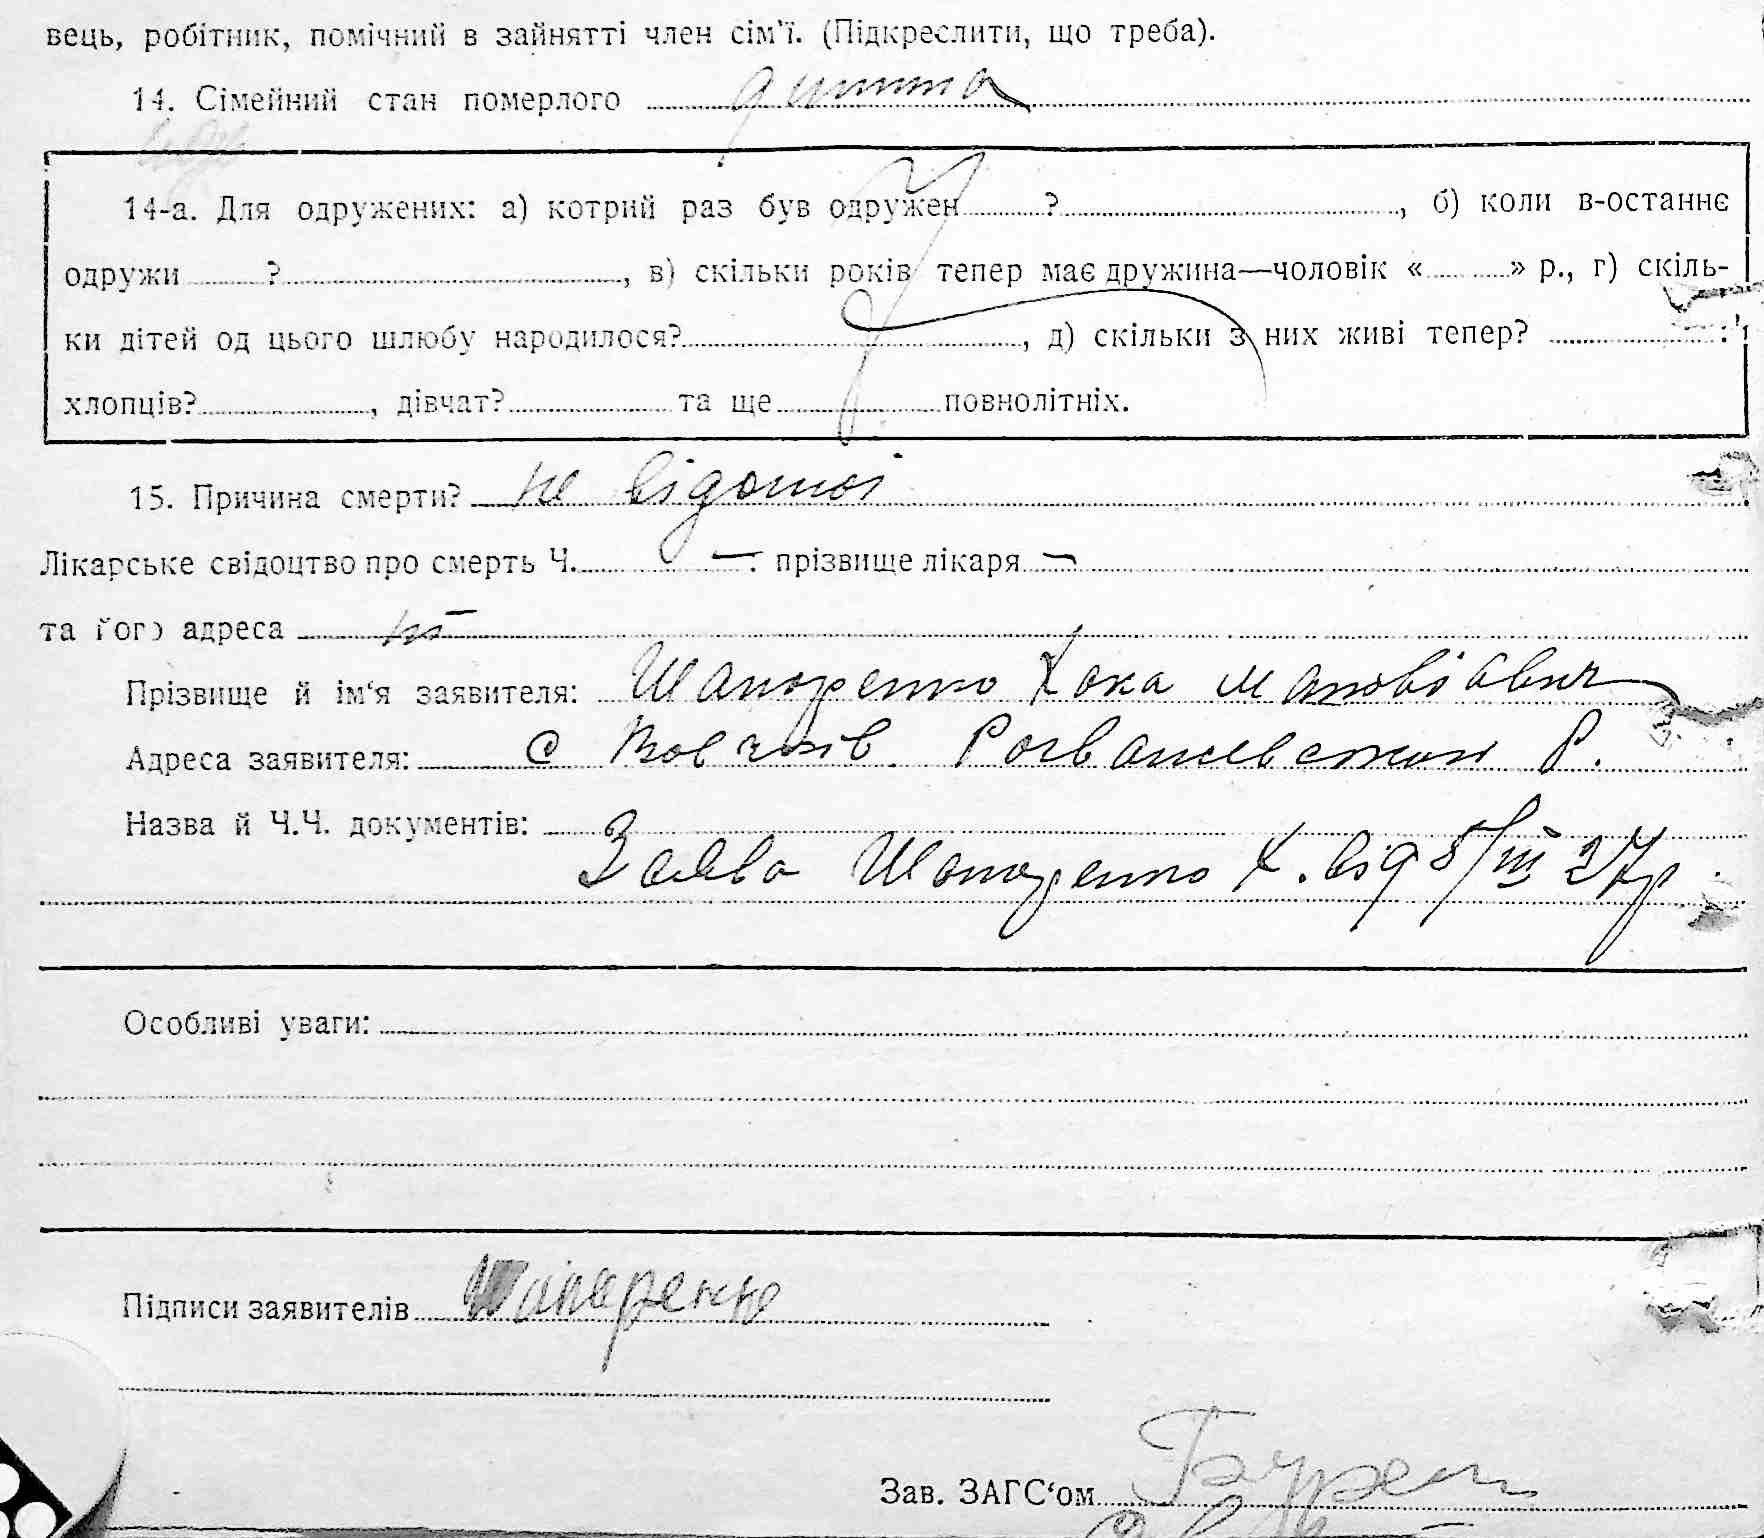 вець, робітник, помічний в зайнятті член сім'ї. (Підкреслити, що треба).
14. Сімейний стан померлого дитина
14-а. Для одружених: а) котрий раз був одружен ? , б) коли в-останнє
одружи ? , в) скільки років тепер має дружина—чоловік « » р., г) скіль-
ки дітей од цього шлюбу народилося? , д) скільки з них живі тепер?
хлопців? , дівчат? та ще повнолітніх.
15. Причина смерти? не відомої
Лікарське свідоцтво про смерть Ч. — прізвище лікаря —
та його адреса
Прізвище й ім‘я заявителя: Шапаренко
Адреса заявителя: с Вовчків Р.
Назва й Ч.Ч. документів:
Заява Шапаренко Х. від 5/III 27р
Особливі уваги:
Підписи заявителів Шапаренко
Зав. ЗАГС‘ом